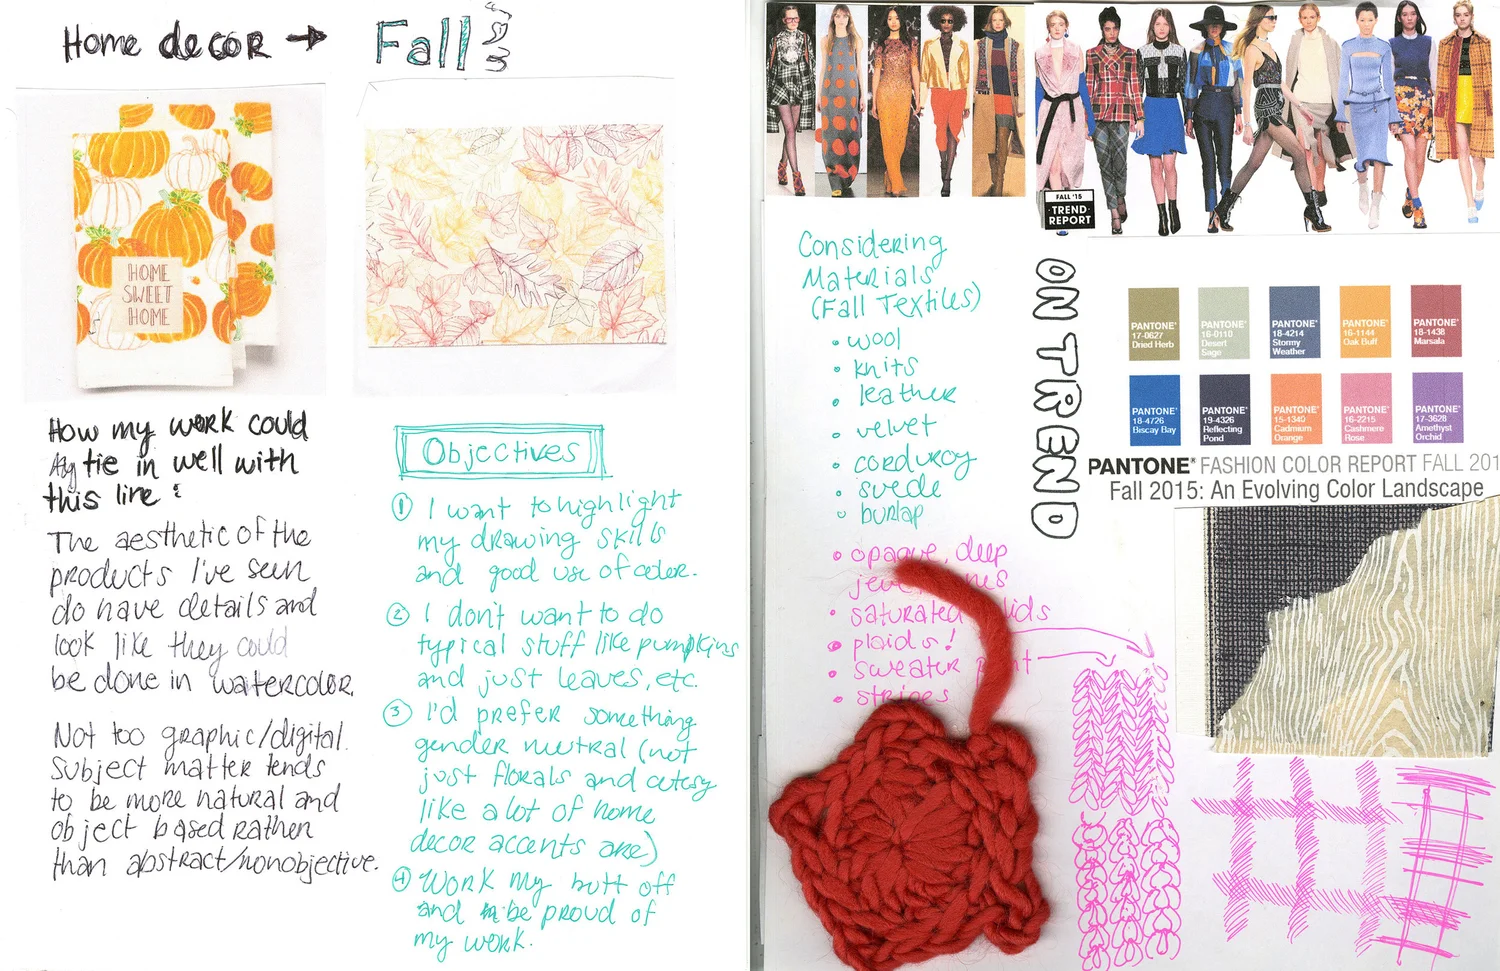 Home decor → Fall
HOME
SWEET
HOME
How my work could
tie in well with
this line:
The aesthetic of the
products I've seen
do have details and
look like they could
be done in watercolor.
Not too graphic/digital.
Subject matter tends
to be more natural and
object based rather
than abstract/nonobjective.
Objectives
① I want to highlight
my drawing skills
and good use of color.
② I don't want to do
typical stuff like pumpkins
and just leaves, etc.
③ I'd prefer something
gender neutral (not
just florals and cutesy
like a lot of home
decor accents are)
④ Work my butt off
and be proud of
my work.
FALL '15
TREND
REPORT
Considering
Materials
(Fall Textiles)
• wool
• knits
• leather
• velvet
• corduroy
• suede
• burlap
• opaque, deep
• saturated
• plaids!
• sweater
• stripes
ON TREND
PANTONE®
17-0627
Dried Herb
PANTONE®
16-0110
Desert
Sage
PANTONE®
18-4214
Stormy
Weather
PANTONE®
16-1144
Oak Buff
PANTONE®
18-1438
Marsala
PANTONE®
18-4726
Biscay Bay
PANTONE®
19-4326
Reflecting
Pond
PANTONE®
15-1340
Cadmium
Orange
PANTONE®
16-2215
Cashmere
Rose
PANTONE®
17-3628
Amethyst
Orchid
PANTONE® FASHION COLOR REPORT FALL 201
Fall 2015: An Evolving Color Landscape